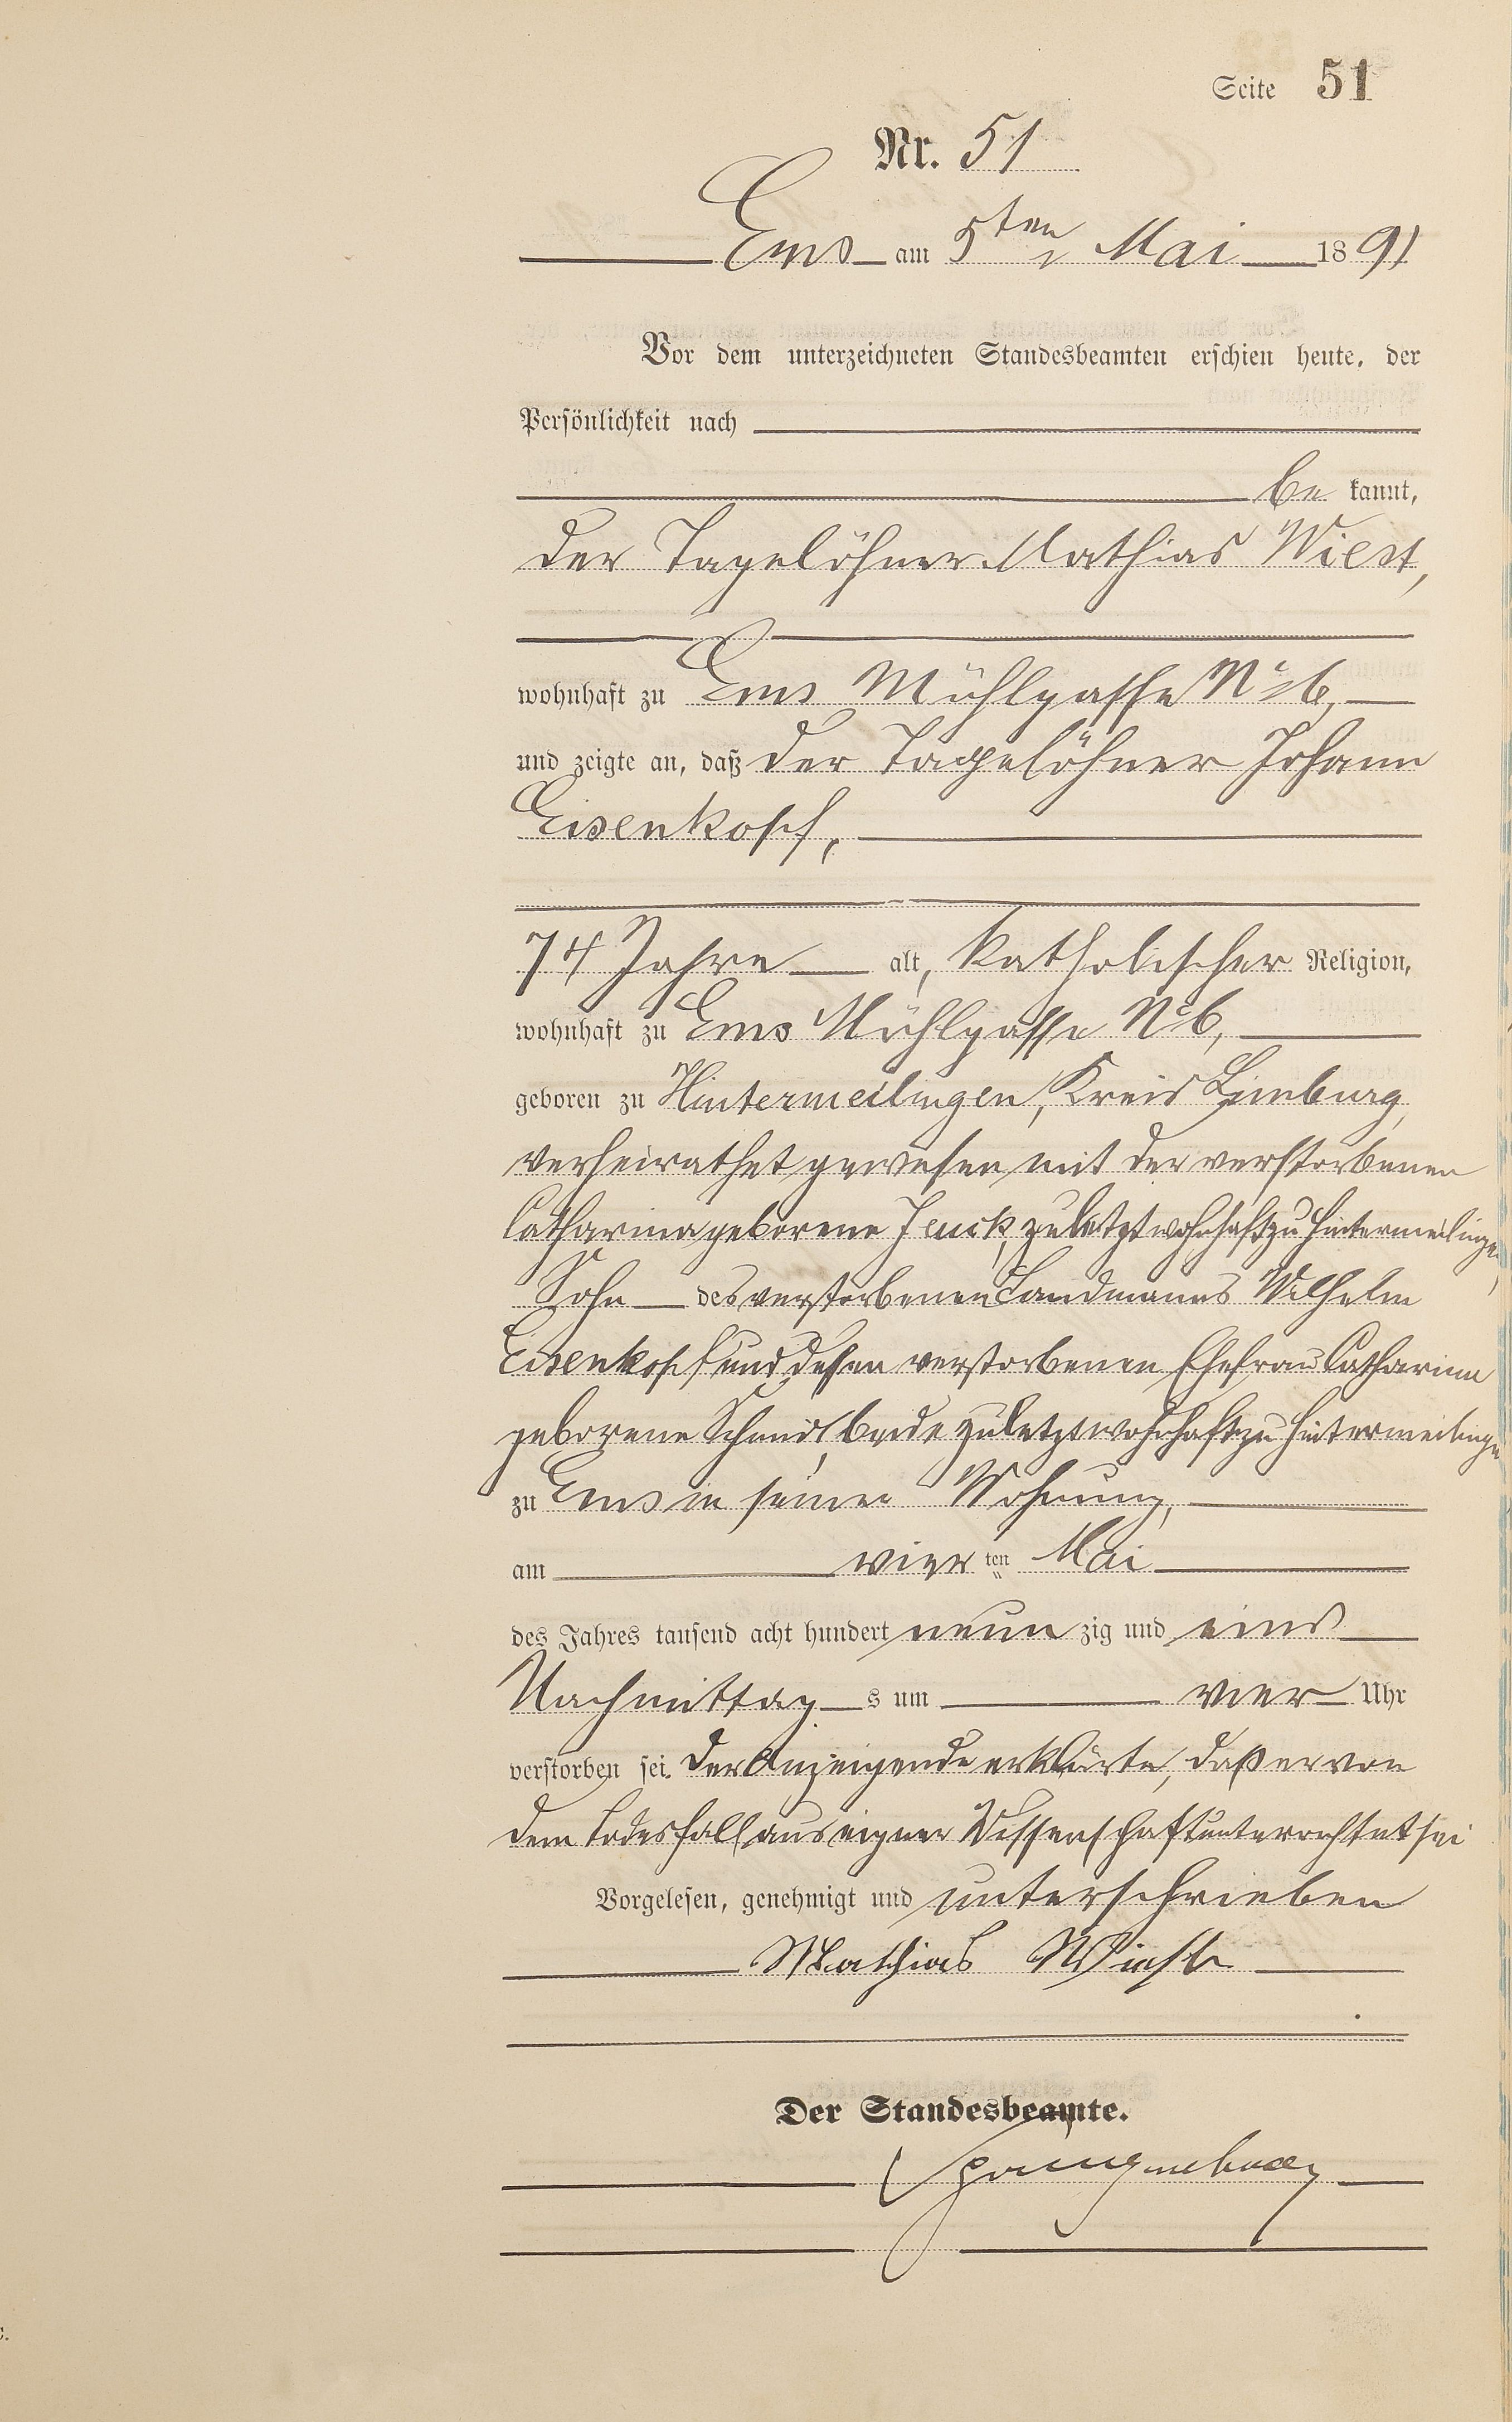 Seite 51
Nr. 51
Ems am 5ten Mai 1891
Vor dem unterzeichneten Standesbeamten erschien heute, der
Persönlichkeit nach
be kannt,
der Tagelöhner Mathias Wiest,
wohnhaft zu Ems Mühlgasse No 6,
und zeigte an, daß der Tagelöhner Johann
Eisenkopf,
74 Jahre alt, katholischer Religion,
wohnhaft zu Ems Mühlgasse No 6,
geboren zu Hintermeilingen, Kreis Limburg,
verheirathet gewesen mit der verstorbenen
Catharina geborene Jeuck, zuletzt wohnhaft zu Hintermeilingen,
Sohn des verstorbenen Landmanns Wilhelm
Eisenkopf und dessen verstorbenen Ehefrau Catharina
geborene Schmid, beide zuletzt wohnhaft zu Hintermeilingen
zu Ems in seiner Wohnung,
am vier ten Mai
des Jahres tausend acht hundert neun zig und eins
Nachmittag s um vier Uhr
verstorben sei. Der Anzeigende erklärte, daß er von
dem Todesfall aus eigner Wissenschaft unterrichtet sei
Vorgelesen, genehmigt und unterschrieben
Mathias Wiest
Der Standesbeamte.